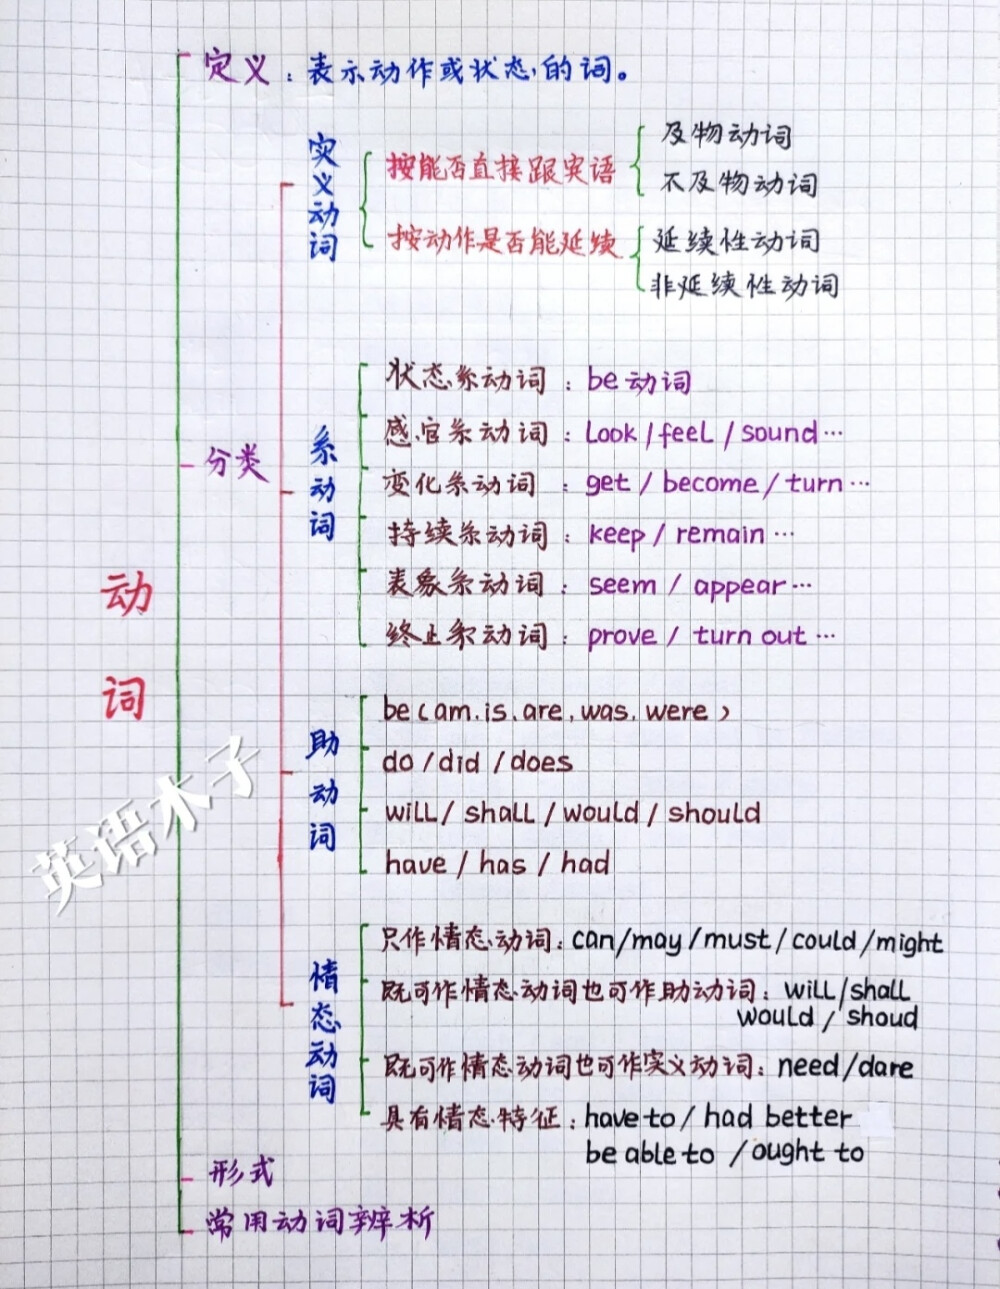 定义：表示动作或状态的词。
实义动词
按能否直接跟宾语
及物动词
不及物动词
按动作是否能延续
延续性动词
非延续性动词
分类
系动词
状态系动词：be动词
感官系动词：look/feel/sound…
变化系动词：get/become/turn…
持续系动词：keep/remain…
表象系动词：seem/appear…
终止系动词：prove/turn out…
动词
助动词
be(am.is.are,was,were)
do/did/does
will/shall/would/should
have/has/had
英语木子
情态动词
只作情态动词：can/may/must/could/might
既可作情态动词也可作助动词：will/shall
would/shoud
既可作情态动词也可作实义动词：need/dare
具有情态特征：have to/had better
be able to/ought to
形式
常用动词辨析